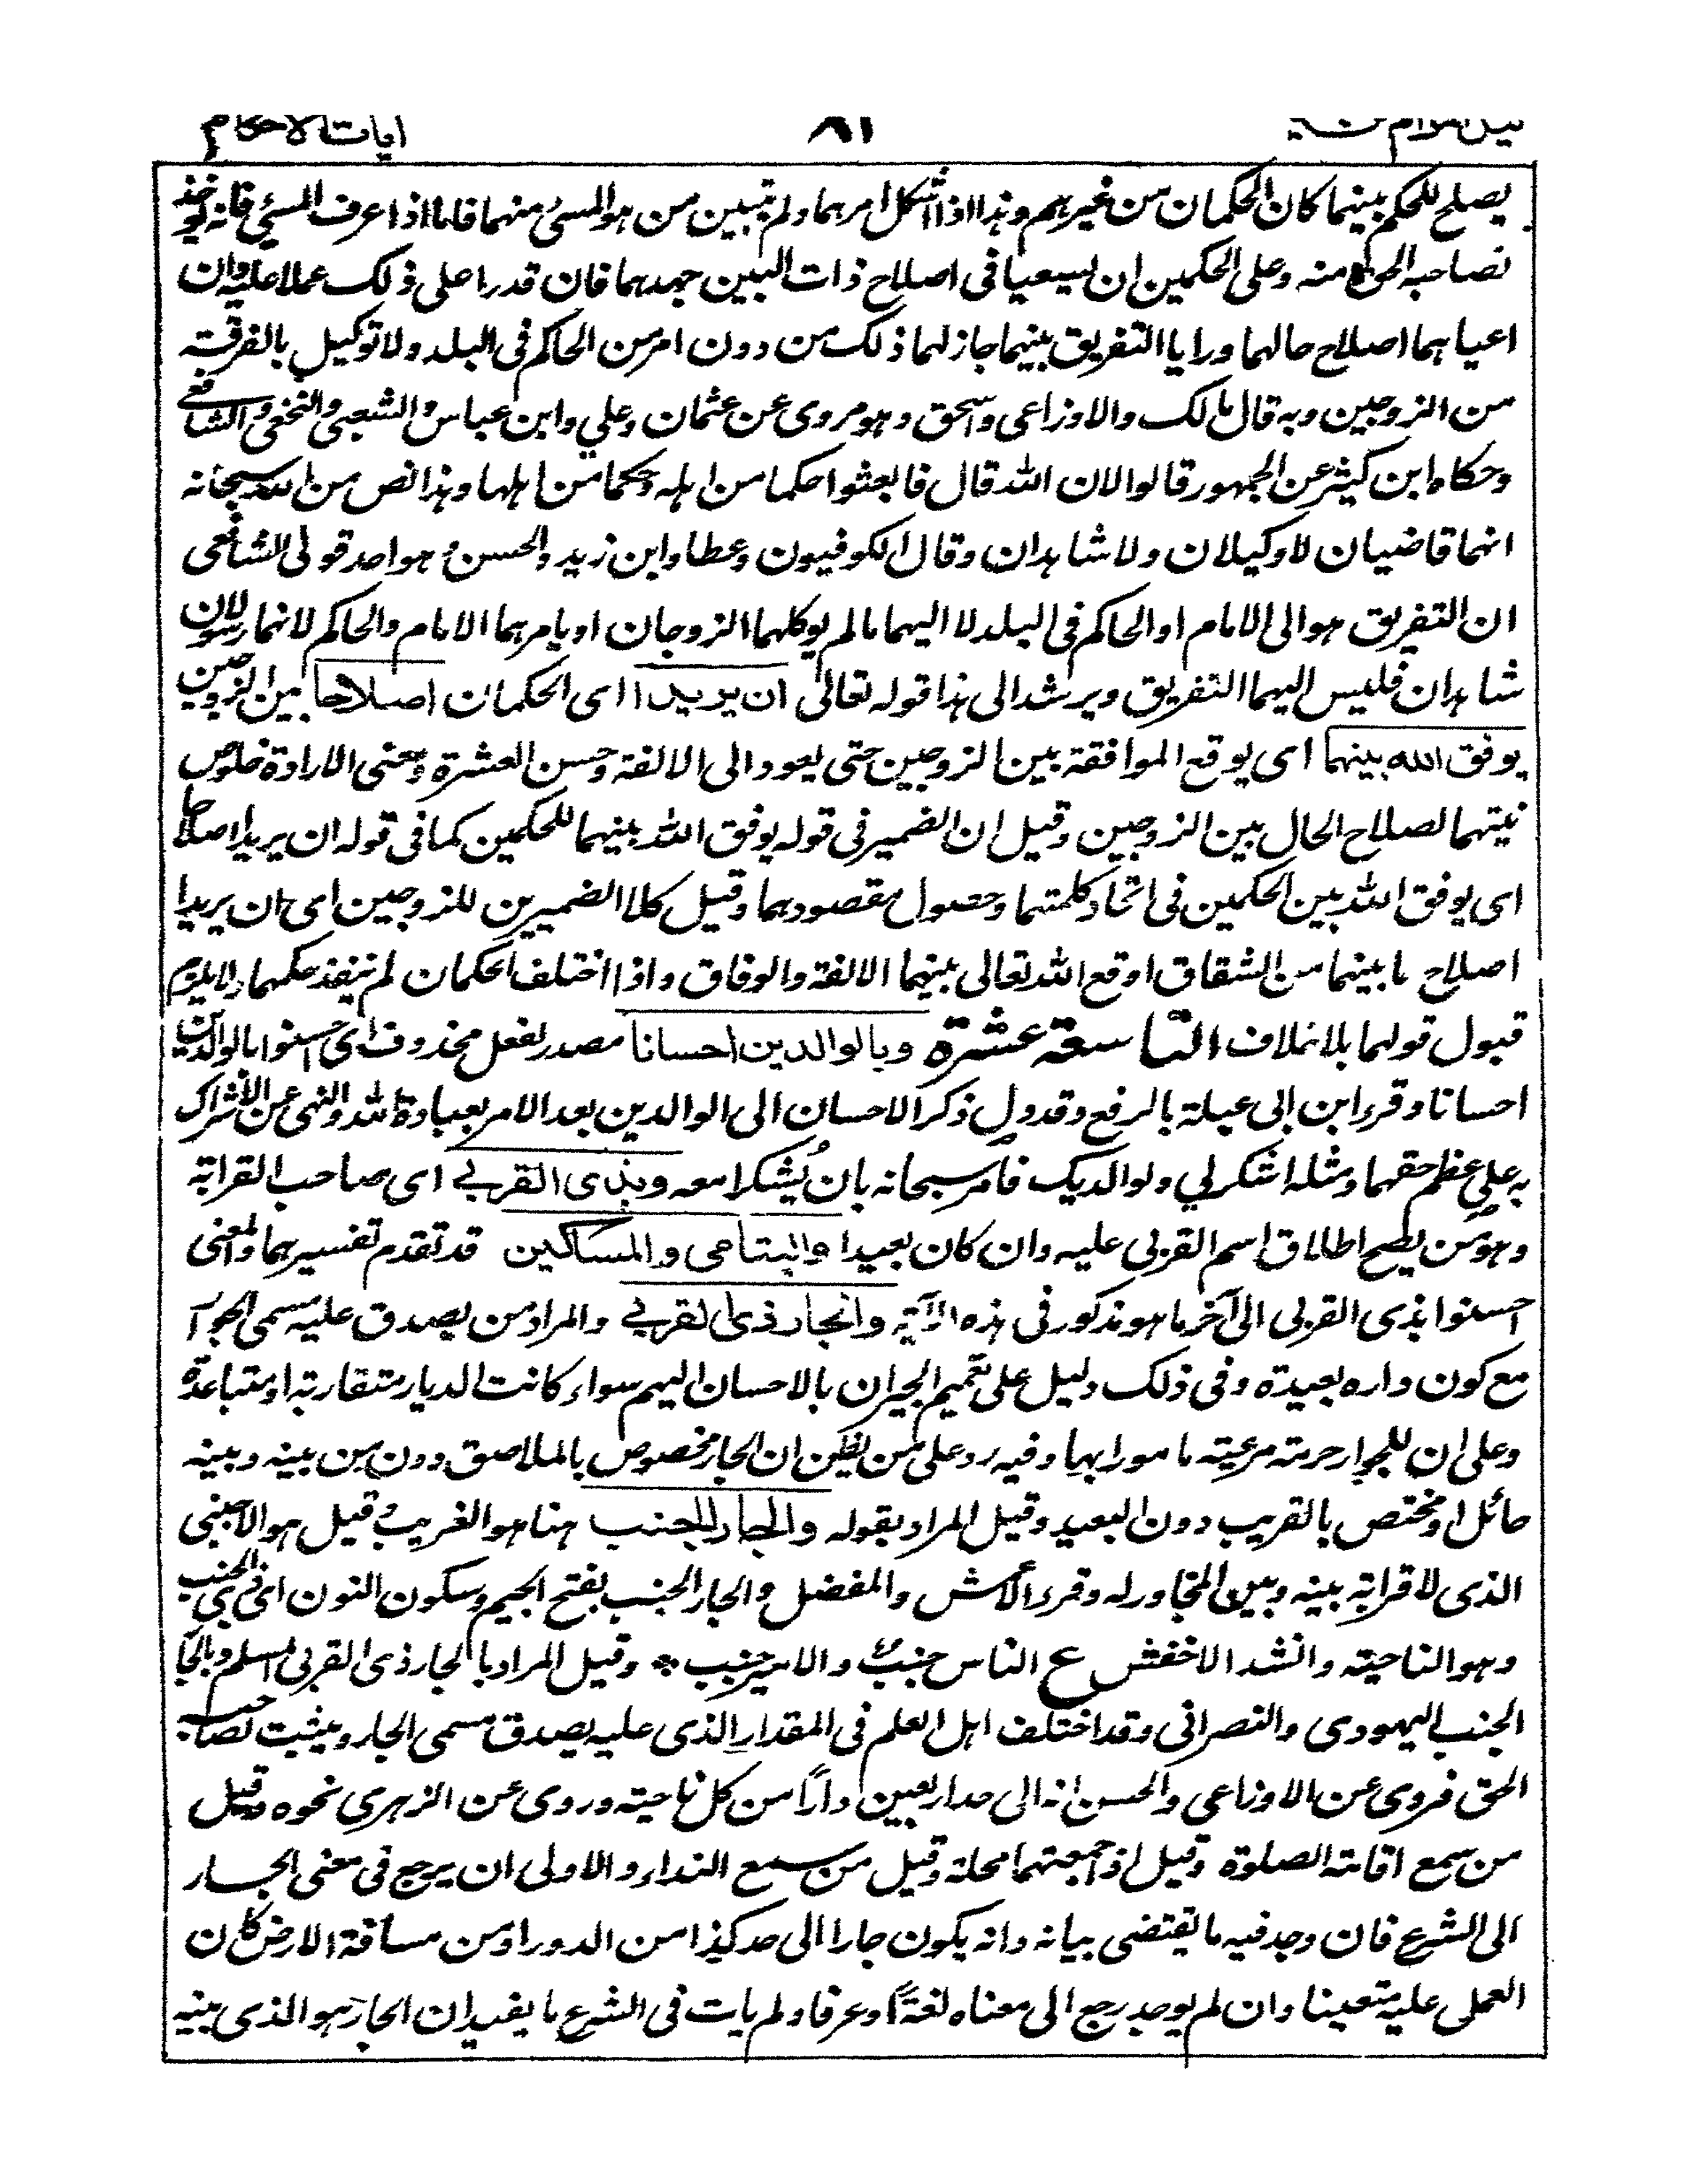 نيل المرام من تفسير ٨٦ ايات الاحكام
يصلح للحكم بينهما كان الحكمان من غيرهم وهذا اذا اشكل امرهما ولم يتبين من هو المسئ منهما فاما اذا عرف المسئ فانه يوخذ
لصاحبه الحق منه وعلى الحكمين ان يسعيا فى اصلاح ذات البين جهدهما فان قدرا على ذلك عملا عليه وان
اعياهما اصلاح حالهما ورايا التفريق بينهما جاز لهما ذلك من دون امر من الحاكم فى البلد ولا توكيل بالفرقة
من الزوجين وبه قال مالك والاوزاعى واسحق وهو مروى عن عثمان وعلي وابن عباس والشعبى والنخعى والشافعى
وحكاه ابن كثير عن الجمهور قالوا لان الله قال فابعثوا حكما من اهله وحكما من اهلها وهذا نص من الله سبحانه
انهما قاضيان لا وكيلان ولا شاهدان وقال الكوفيون وعطا وابن زيد والحسن وهو احد قولى الشافعى
ان التفريق هو الى الامام او الحاكم فى البلد لا اليهما ما لم يوكلهما الزوجان او يامرهما الامام والحاكم لانهما رسولان
شاهدان فليس اليهما التفريق ويرشد الى هذا قوله تعالى ان يريدا اى الحكمان اصلاحا بين الزوجين
يوفق الله بينهما اى يوقع الموافقة بين الزوجين حتى يعودا الى الالفة وحسن العشرة ومعنى الارادة خلوص
نيتهما لصلاح الحال بين الزوجين وقيل ان الضمير فى قوله يوفق الله بينهما للحكمين كما فى قوله ان يريدا اصلاحا
اى يوفق الله بين الحكمين فى اتحاد كلمتهما وحصول مقصودهما وقيل كلا الضميرين للزوجين اى ان يريدا
اصلاح ما بينهما من الشقاق اوقع الله تعالى بينهما الالفة والوفاق واذا اختلف الحكمان لم ينفذ حكمهما ولا يلزم
قبول قولهما بلا خلاف التاسعة عشرة وبالوالدين احسانا مصدر لفعل محذوف اى احسنوا بالوالدين
احسانا وقرء ابن ابى عبلة بالرفع وقد دل ذكر الاحسان الى الوالدين بعد الامر بعبادة الله والنهى عن الاشراك
به على عظم حقهما ومثله اشكر لي ولوالديك فامر سبحانه بان يُشكرا معه وبذى القربى اى صاحب القرابة
وهو من يصح اطلاق اسم القربى عليه وان كان بعيدا واليتامى والمساكين قد تقدم تفسيرهما والمعنى
احسنوا بذى القربى الى آخر ما هو مذكور فى هذه الآية والجار ذى القربى والمراد من يصدق عليه مسمى الجوار
مع كون داره بعيدة وفى ذلك دليل على تعميم الجيران بالاحسان اليهم سواء كانت الديار متقاربة او متباعدة
وعلى ان للجوار حرمة مرعية مامورا بها وفيه رد على من يظن ان الجار مخصوص بالملاصق دون من بينه وبينه
حائل او مختص بالقريب دون البعيد وقيل المراد بقوله والجار الجنب هنا هو الغريب وقيل هو الاجنبى
الذى لا قرابة بينه وبين المجاور له وقرء الاعمش والمفضل والجار الجنب بفتح الجيم وسكون النون اى ذى الجنب
وهو الناحية وانشد الاخفش ع الناس جنب والامير جنب * وقيل المراد بالجار ذى القربى المسلم وبالجار
الجنب اليهودى والنصرانى وقد اختلف اهل العلم فى المقدار الذى عليه يصدق مسمى الجار ويثبت لصاحبه
الحق فروى عن الاوزاعى والحسن انه الى حد اربعين داراً من كل ناحية وروى عن الزهري نحوه وقيل
من سمع اقامة الصلوة وقيل اذا جمعتهما محلة وقيل من سمع النداء والاولى ان يرجع فى معنى الجار
الى الشرع فان وجد فيه ما يقتضى بيانه وانه يكون جارا الى حد كذا من الدور او من مسافة الارض كان
العمل عليه متعينا وان لم يوجد رجع الى معناه لغةً او عرفا ولم يات فى الشرع ما يفيد ان الجار هو الذى بينه